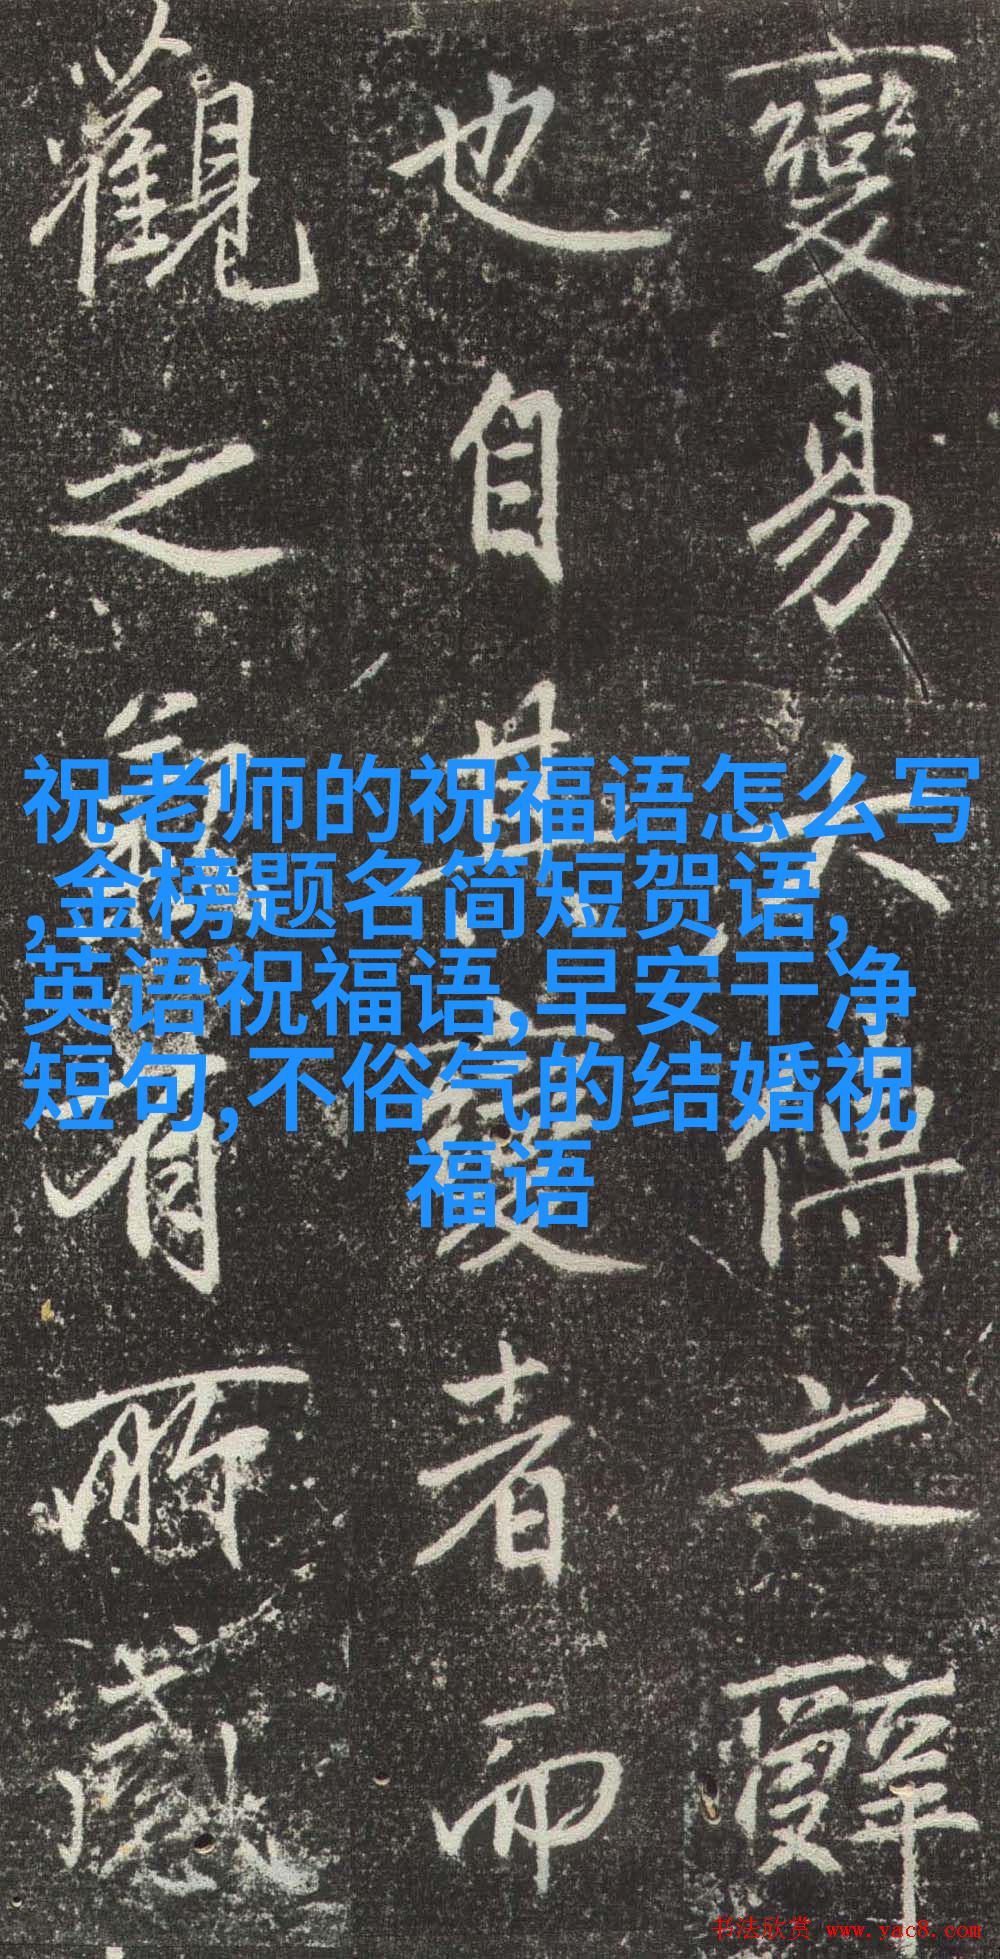 變易大傳之辭
也自其變者而
觀之額有所感
祝老师的祝福语怎么写
,金榜题名简短贺语,
英语祝福语,早安干净
短句,不俗气的结婚祝
福语
书法欣赏 www.yac8.com